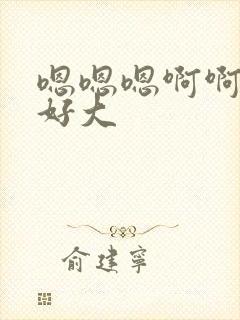 嗯嗯嗯啊啊
好大
俞建寧